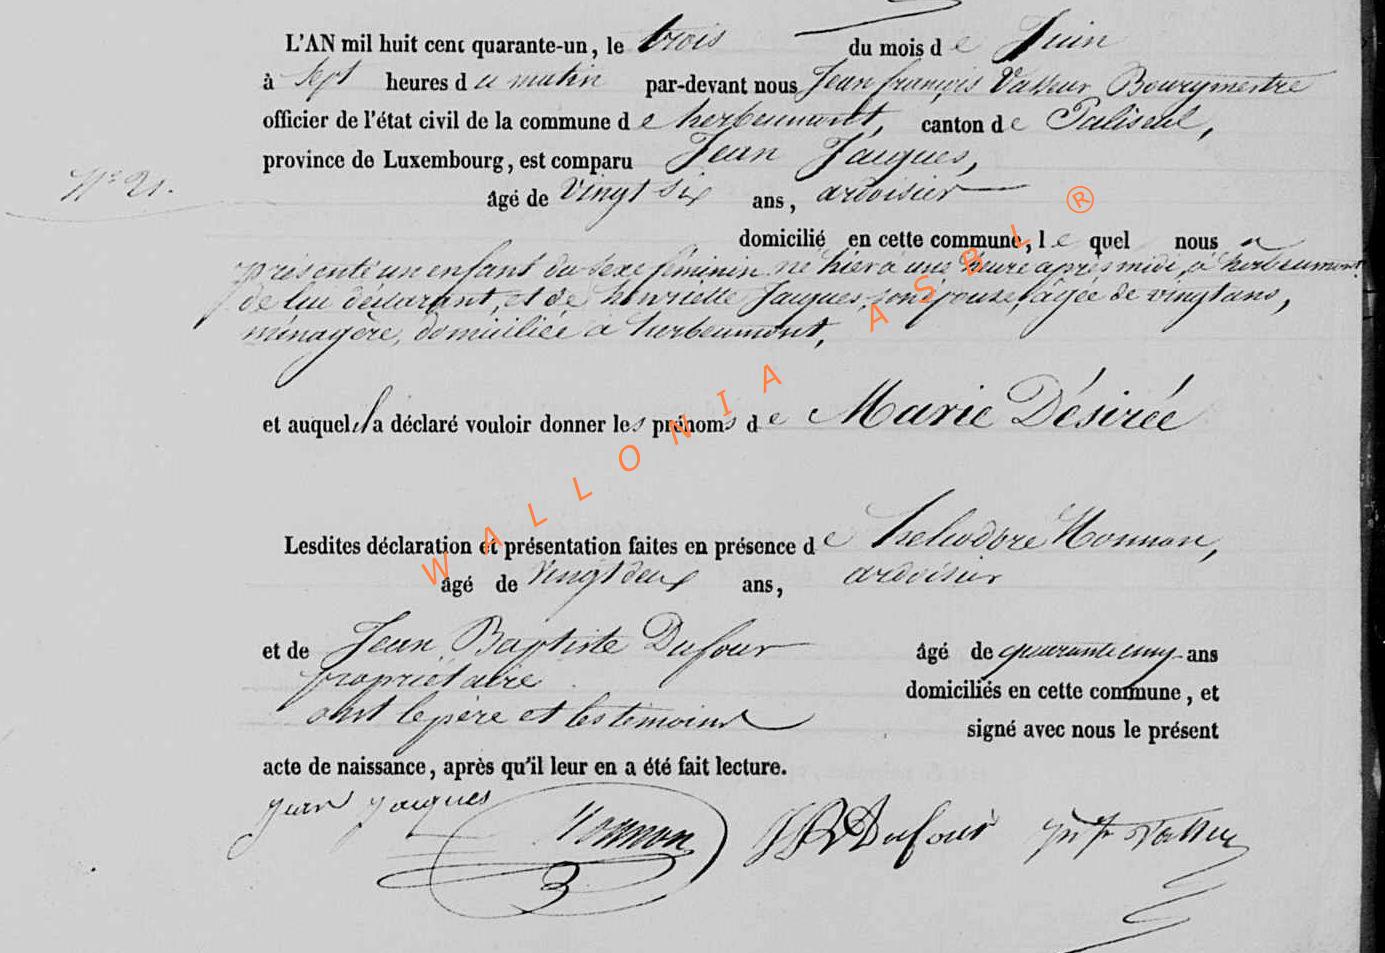 L'AN mil huit cent quarante-un, le trois du mois de Juin
à sept heures du matin par-devant nous Jean françois Vasseur Bourgmestre
officier de l'état civil de la commune de herbeumont, canton de Paliseul,
province de Luxembourg, est comparu Jean Jacques,
N° 21.
âgé de vingt six ans, ardoisier
domicilié en cette commune, lequel nous a
présenté un enfant du sexe féminin né hier à une heure après midi, à herbeumont
de lui déclarant, et de henriette Jacques, son épouse, âgée de vingt ans,
ménagère, domiciliée à herbeumont,
et auquel il a déclaré vouloir donner les prénoms de Marie Désirée
Lesdites déclaration et présentation faites en présence de heliodore Monnon,
âgé de vingt deux ans, ardoisier
et de Jean Baptiste Dufour âgé de quarante cinq ans
propriétaire domiciliés en cette commune, et
ont le père et les témoins signé avec nous le présent
acte de naissance, après qu'il leur en a été fait lecture.
Jean Jacques Monnon JB Dufour
WALLONIA ASBL ®